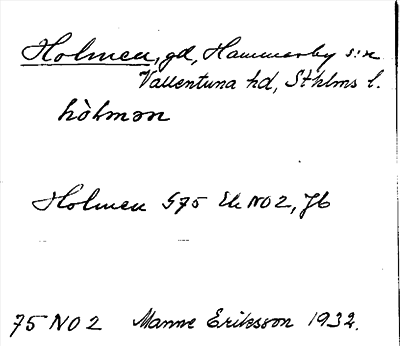 Holmen, gd, Hammarby s:n
Vallentuna hd, Sthlms l.
hòlmən
Holmen S75 Ek NO2, Jb
75 NO 2 Manne Eriksson 1932.